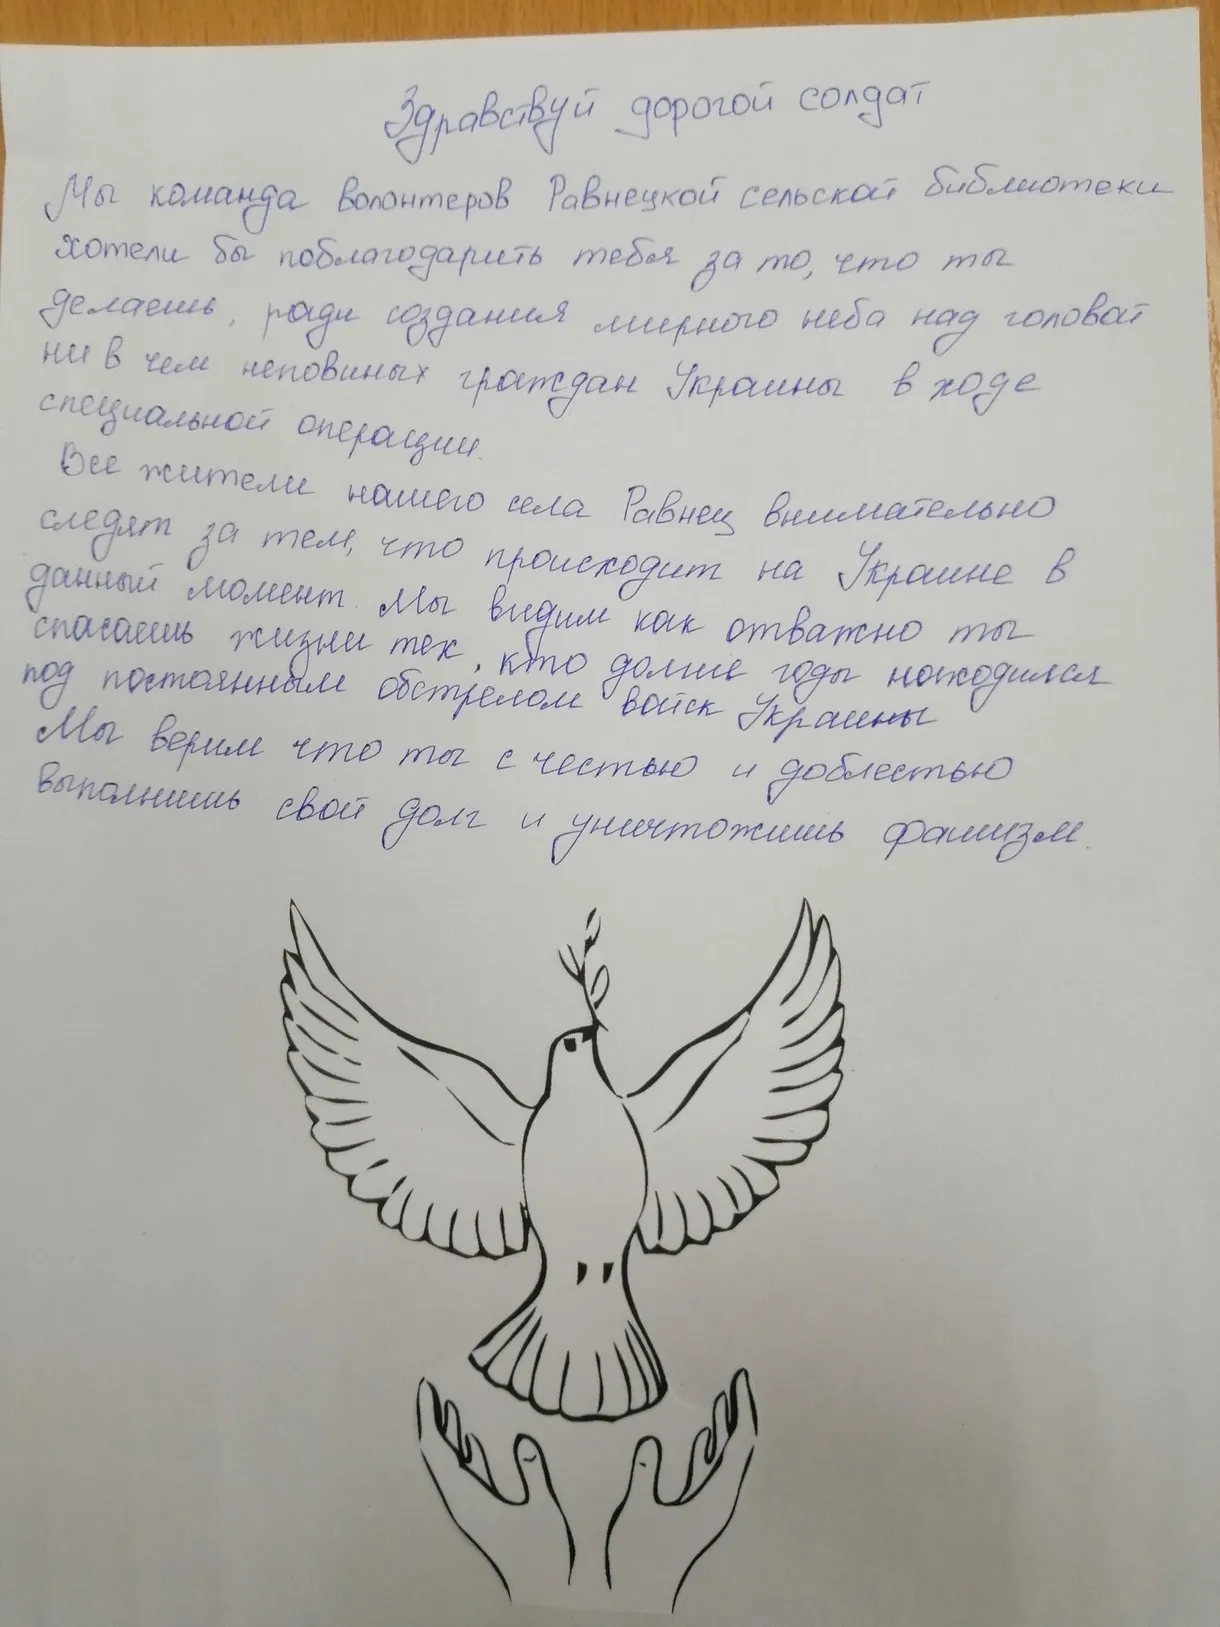 Здравствуй дорогой солдат
Мы команда волонтеров Равнецкой сельской библиотеки
хотели бы поблагодарить тебя за то, что ты
делаешь, ради создания мирного неба над головой
ни в чем неповиных граждан Украины в ходе
специальной операции.
Все жители нашего села Равнец внимательно
следят за тем, что происходит на Украине в
данный момент. Мы видим как отважно ты
спасаешь жизни тех, кто долгие годы находился
под постоянным обстрелом войск Украины
Мы верим что ты с честью и доблестью
выполнишь свой долг и уничтожишь фашизм.